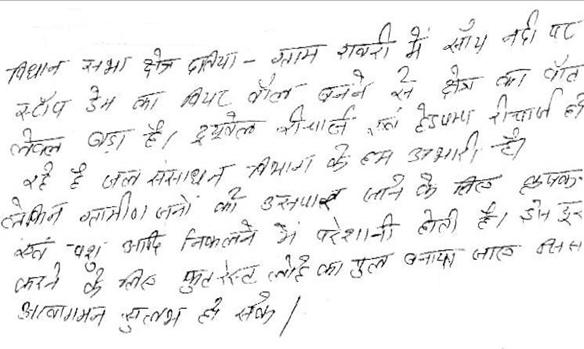 विधान सभा क्षेत्र दतिया - ग्राम रावरी में सांप नदी पर
स्टॉप डेम का वियर वॉल बनने से क्षेत्र का वॉटर
लेवल बड़ा है। ट्यूबेल रीचार्ज एवं हेडपम्प रीचार्ज हो
रहे है जल संसाधन विभाग के हम आभारी है।
लेकिन ग्रामीण जनों को उसपार जाने के लिए कृषक
एवं पशु आदि निकलने में परेशानी होती है। डेम
करने के लिए फुटरेस्ट लोहे का पुल बनाया जाए
आवागमन सुलभ हो सके।